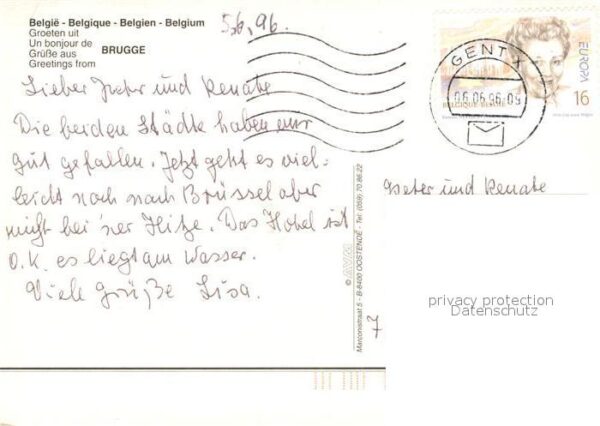 België - Belgique - Belgien - Belgium
Groeten uit
Un bonjour de
Grüße aus
Greetings from
BRUGGE
5.6.96.
Lieber Dieter und Renate
Die beiden Städte haben mir
gut gefallen. Jetzt geht es viel-
leicht noch nach Brüssel aber
nicht bei 'ner Hitze. Das Hotel ist
O.K. es liegt am Wasser.
Viele Grüße Lisa.
GENT X
06.06.96-09
BELGIQUE BELGIE
EUROPA
16
Dieter und Renate
privacy protection
Datenschutz
Marconistraat 5 - B-8400 OOSTENDE - Tel: (059) 70.86.22
7